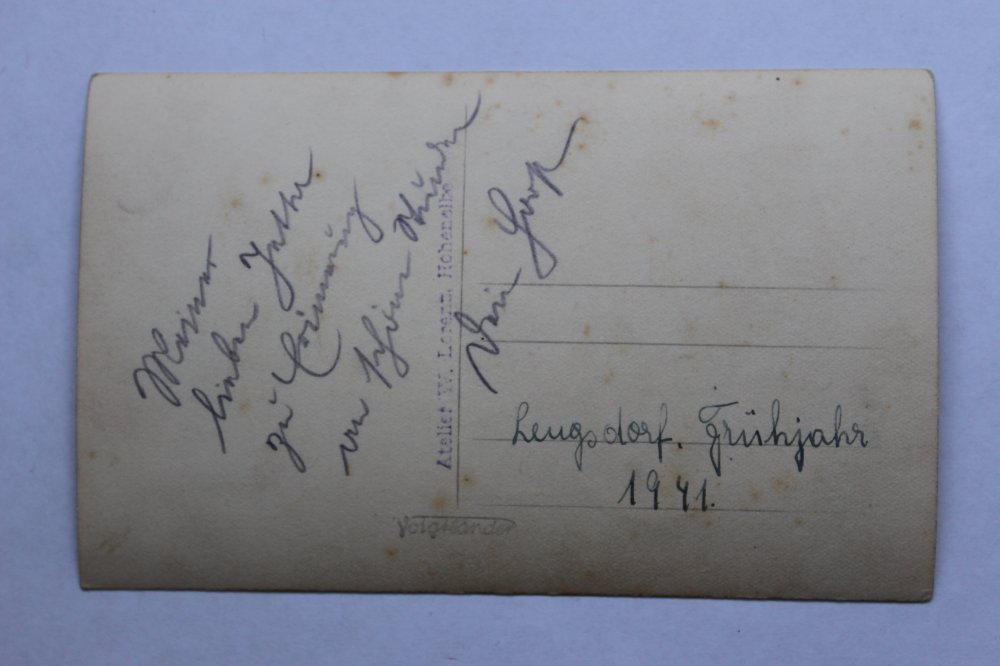 Meiner
lieben
zu Erinnerung
an schöne Stunden
Dein
Atelier W. Lorenz, Hohenelbe
Lengsdorf. Frühjahr
1941.
Voigtländer